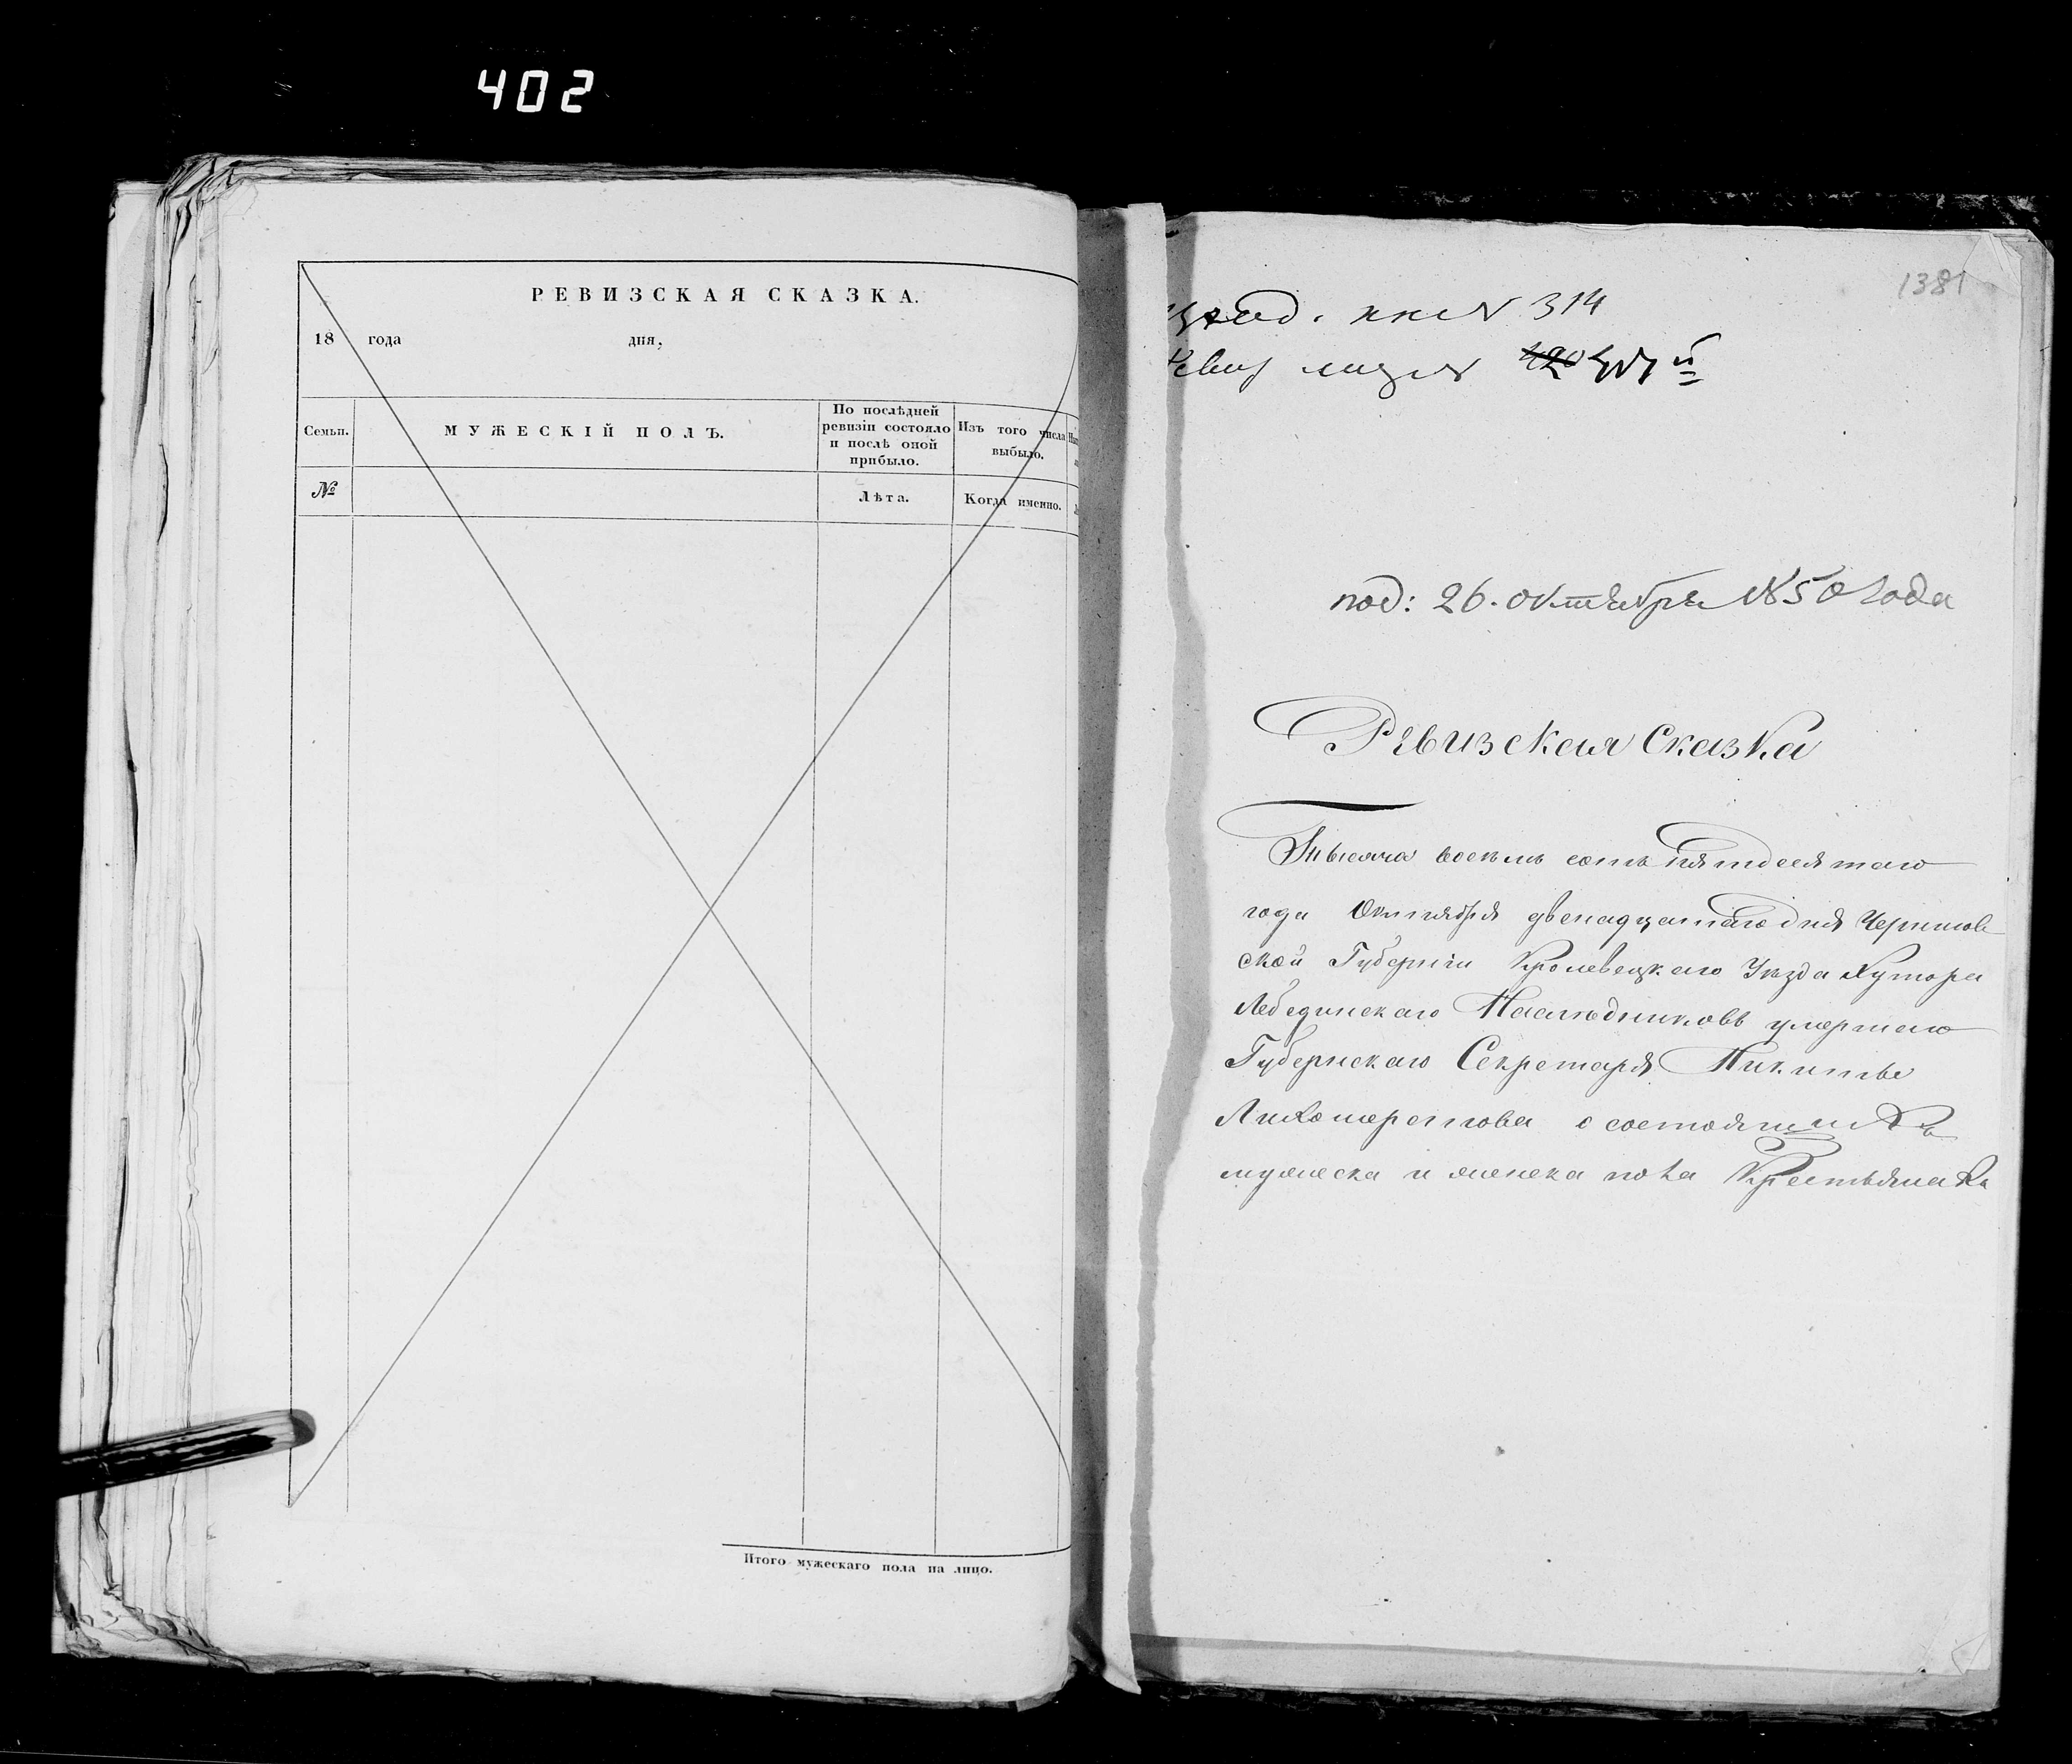 402
РЕВИЗСКАЯ СКАЗКА.
18 года дня,
Семьи.
МУЖЕСКІЙ ПОЛЪ.
По послѣдней ревизіи состояло и послѣ оной прибыло.
Изъ того числа выбыло.
№
Лѣта.
Когда именно.
Итого мужескаго пола на лицо.
1381
314
под: 26. октября 1850 года
Ревизская Сказка
Тысяча восемь сотъ пятдесятаго
года Октября двенадцатаго дня Чернигов
ской Губерніи Кролевецкаго Уезда Хутора
Лебединскаго Наследниковъ умершаго
Губернскаго Секретаря Никиты
Лихошерстова о состоящихъ
мужеска и женска пола Крестьянахъ